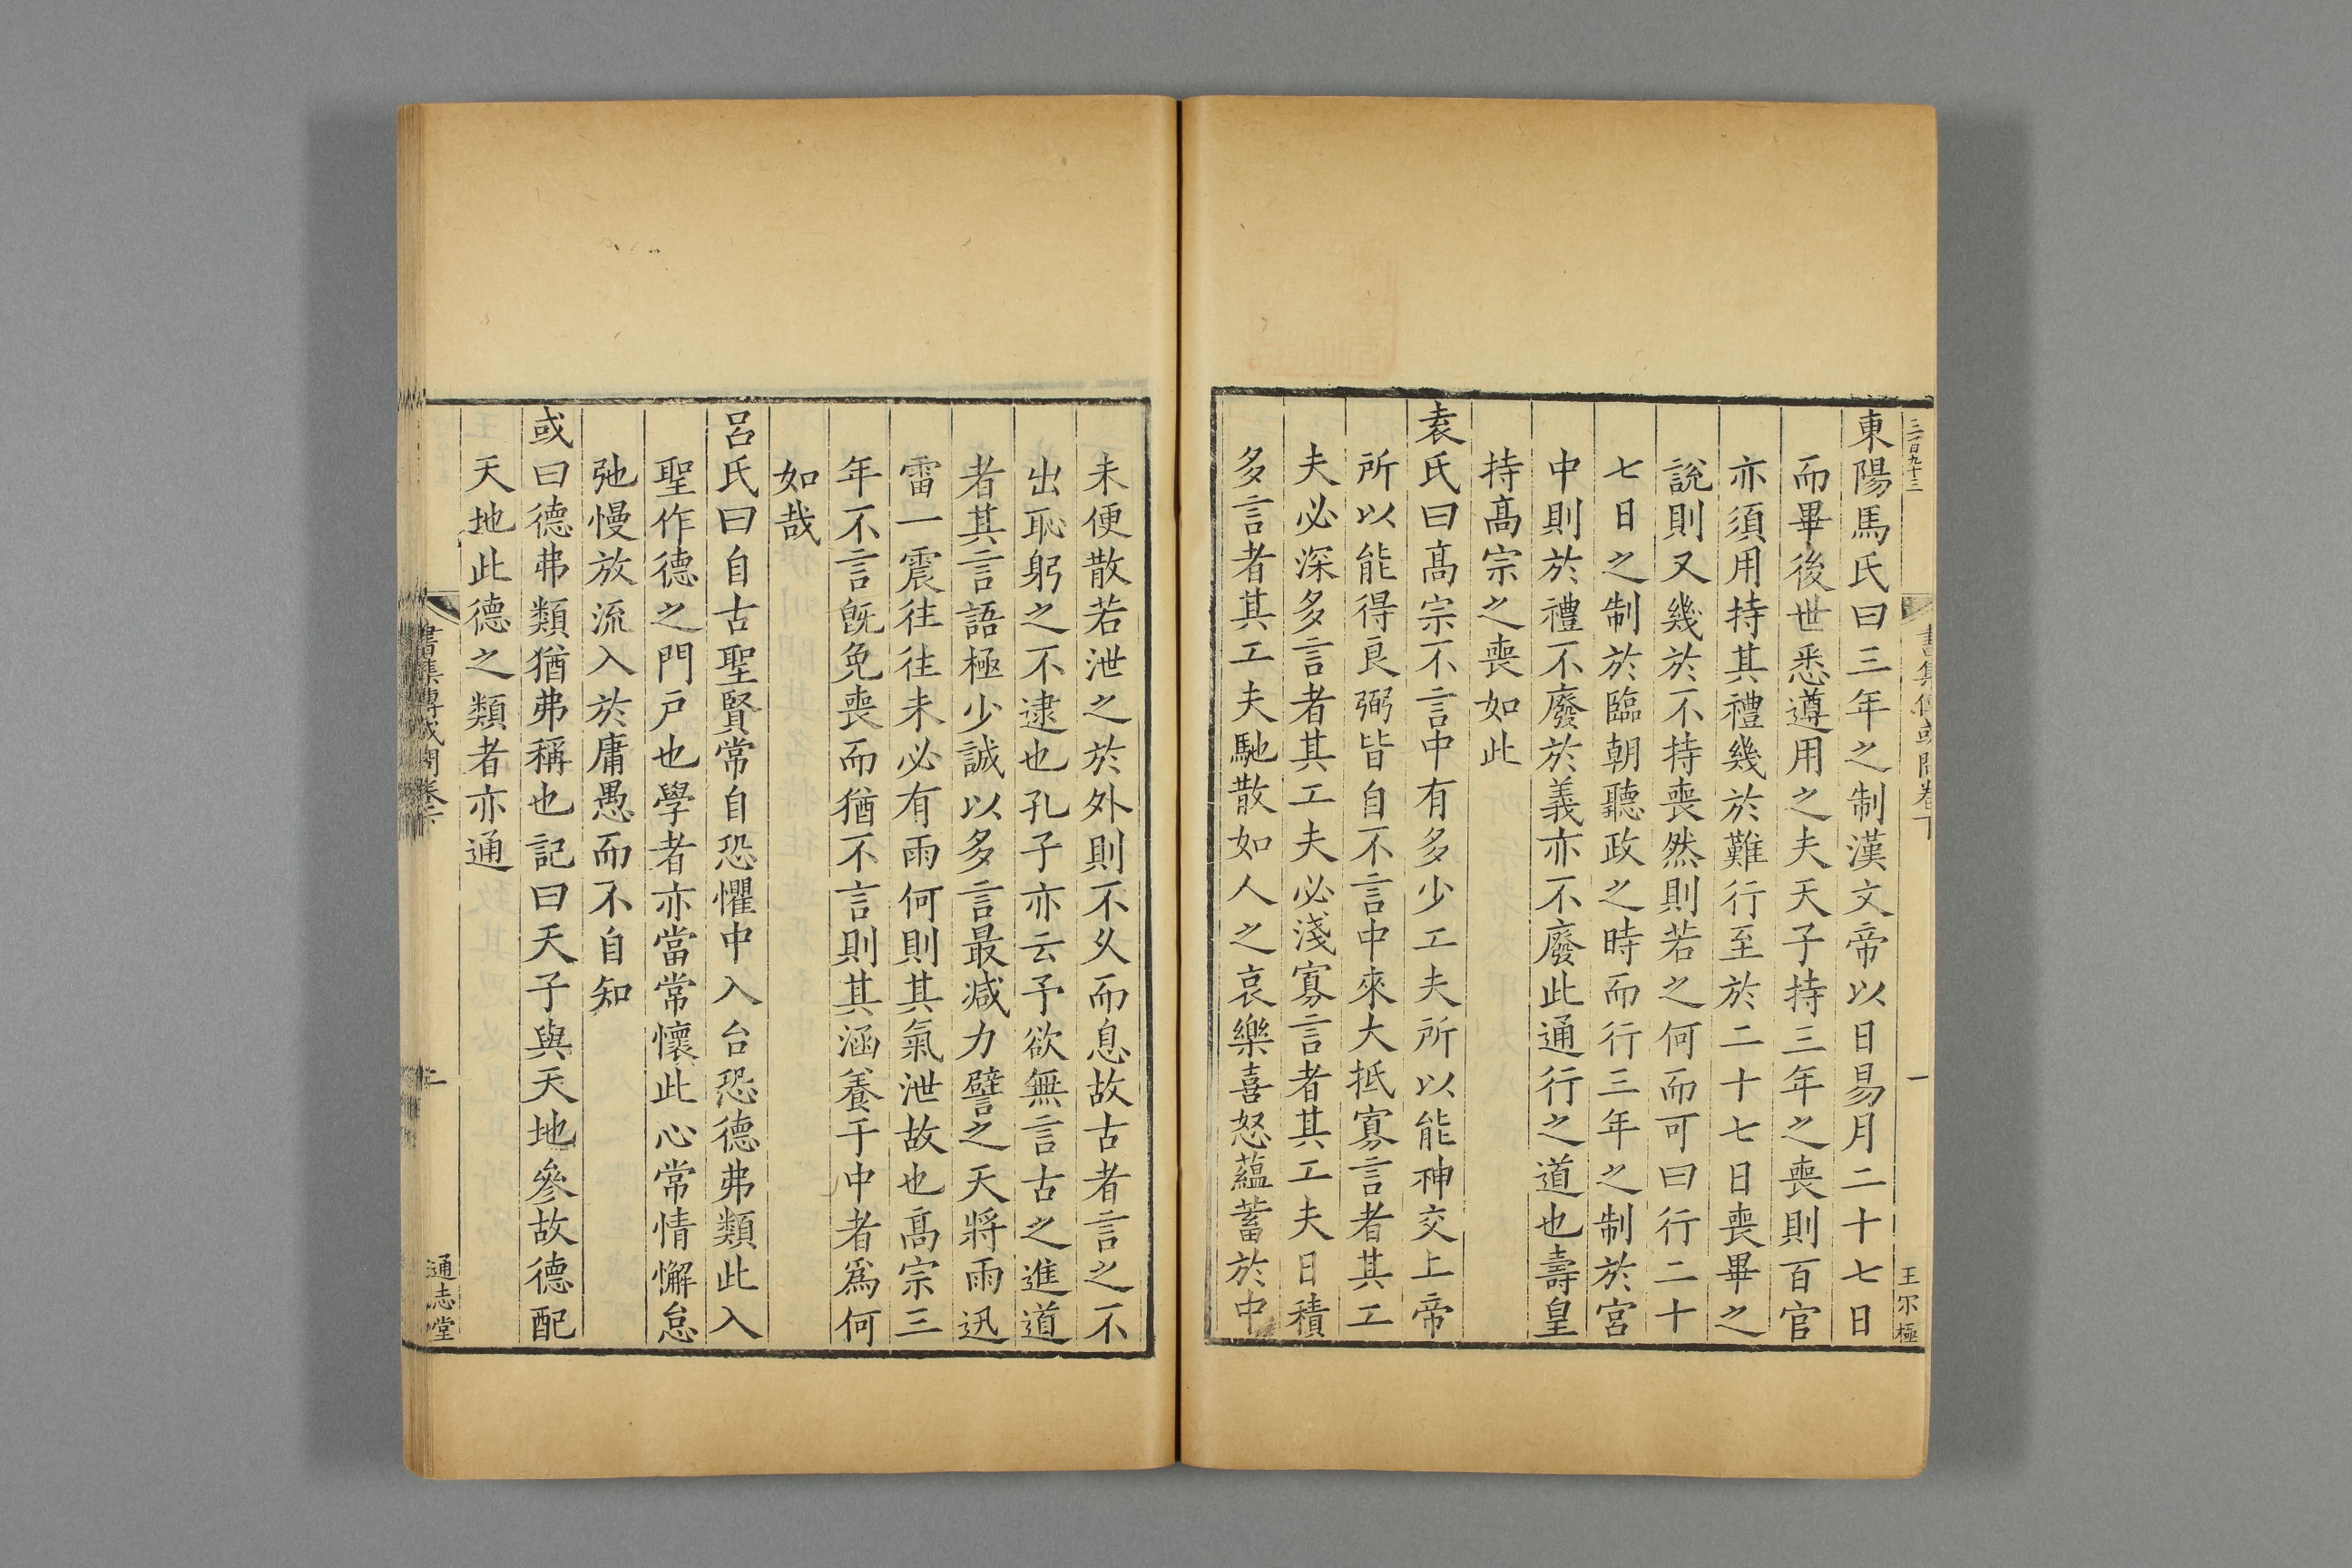 三百九十三
書集傳或問卷下
一
王尔極
東陽馬氏曰三年之制漢文帝以日易月二十七日
而畢後世悉遵用之夫天子持三年之喪則百官
亦須用持其禮幾於難行至於二十七日喪畢之
說則又幾於不持喪然則若之何而可曰行二十
七日之制於臨朝聽政之時而行三年之制於宮
中則於禮不廢於義亦不廢此通行之道也壽皇
持髙宗之喪如此
袁氏曰髙宗不言中有多少工夫所以能神交上帝
所以能得良弼皆自不言中來大抵寡言者其工
夫必深多言者其工夫必淺寡言者其工夫日積
多言者其工夫馳散如人之哀樂喜怒蘊蓄於中
未便散若泄之於外則不久而息故古者言之不
出恥躬之不逮也孔子亦云予欲無言古之進道
者其言語極少誠以多言最减力譬之天將雨迅
雷一震往往未必有雨何則其氣泄故也髙宗三
年不言旣免喪而猶不言則其涵養于中者爲何
如哉
呂氏曰自古聖賢常自恐懼中入台恐德弗類此入
聖作德之門戸也學者亦當常懷此心常情懈怠
弛慢放流入於庸愚而不自知
或曰德弗類猶弗稱也記曰天子與天地參故德配
天地此德之類者亦通
書集傳或問卷下
二
通志堂